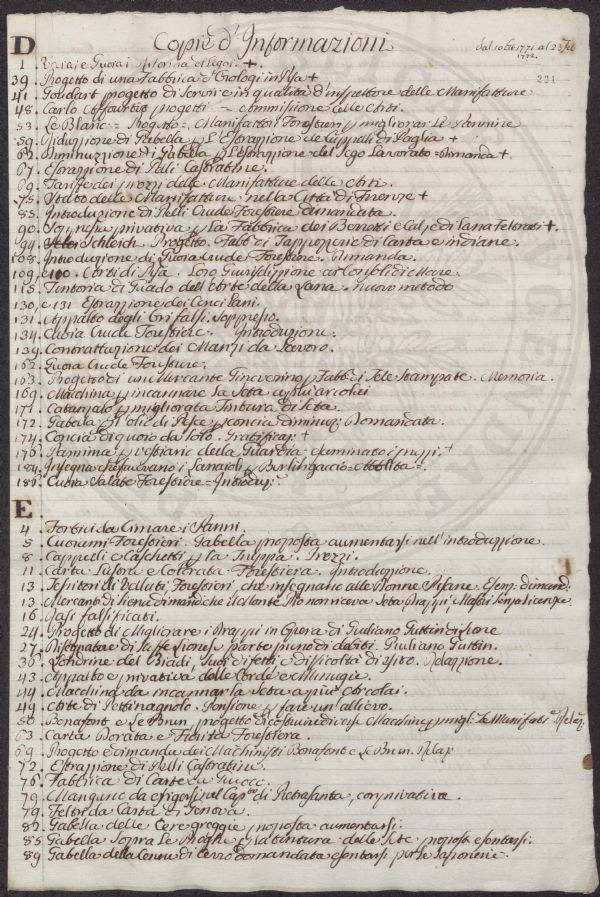 D
Copie d'Informazioni
Dal 1771 al 23
1772.
221
1 . Vacai e
39 . Progetto di una Fabbrica d'Orologi in Pisa +
41 . Goudart progetto di Servire in qualità d'inspettore delle Manifatture
48 . Carlo progetti = commissione delle Arti.
53 . Le Blanc = Progetto = Manifattori Forestieri p migliorar Le
59 . Riduzzione di Gabella p L'Estrazzione de Cappelli di Paglia +
62 . Diminuzzione di Gabella p L'Estrazzione del Sego Lavorato = Dimanda +.
67 . Estrazzione di Pelli Castratine.
69 . Tariffe dei prezzi delle Manifatture delle Arti.
75 . Stato delle Manifatture nella Città di Firenze +
85 . Introduzione di Pelli Crude Forestiere dimandata.
90 . privativa p La Fabbrica dei Berretti e Calze di Lana Feltrati +.
94 . Schleich. Progetto. Fabb. di Tappezzerie di Carta e indiane.
108 . Introduzione di Quoia Crude Forestiere. Dimanda.
109 , e 110 . Arti di Pisa. Loro Giurisdizzione ai Consoli di Mare.
115 . Tintoria di Guado dell'Arte della Lana. nuovo metodo
130 , e 131 Estrazzione dei Cenci Lani.
131 . Appalto degli Ori falsi. Soppresso.
134 . Cuoia Crude Forestiere. Introduzione.
139 . Contrattazione dei Manzi da Lavoro.
162 . Quoia Crude Forestiere.
163 . Progetto di un Mercante Fiorentino p Fabb. di Tele Stampate. Memoria.
169 . Macchina p incannare La Seta a più arcolei
171 . Catanzaro p migliorata Tintura di Seta.
172 . Gabella p l'olio di Pesce p concia diminuz. Domandata.
174 . Concia di quoio da Solo. Gratificaz. +
176 . Pannina p vestiario della Guardia. esaminato i prezzi. +
184 . Insegna che facevano i Lanaioli p = Abolita =.
186 . Cuoia Salate Forestiere = Introduz.
E
4 . Forbici da Cimare i Panni.
5 . Cuoiami Forestieri. Gabella proposta aumentarsi nell'introduzzione.
8 . Cappelli e Caschetti p La Truppa. Prezzi.
11 . Carta Sugora e Colorata Forestiera. Introduzione.
13 . Tessitori di Velluti Forestieri, che insegnano alle Donne Pisane. Esenz. dimand.
13 . Mercanti di Siena dimand. che il Monte Pio non riceva Seta Drappi e Massai senza licenze
16 . Masi falsificati.
24 . Progetto di Migliorare i Drappi in Opera di Giuliano Futtin di Lione
27 . Risegnate di Tuffe Lionese parto pieno di debiti. Giuliano Futtin.
36 . Londrine del Biadi, Suoi difetti, e difficoltà di Esito. Relazzione.
43 . Appalto e privativa delle Corde e Minugie.
44 . Macchina da incannar la Seta a più Arcolai.
49 . Arte di Pettinagnolo. Pensione p fare un allievo.
50 . Bonafont e Le Brun, progetto di costruire diverse Macchine p migl. Le Manifatt.e Relaz.
63 . Carta Dorata e Fiorita Forestiera.
69 . Progetto e dimanda dei Macchinisti Bonafont e Le Brun. Relaz.
72 . Estrazzione di Pelli Castratine.
76 . Fabbrica di Carte da Giuoco.
79 . Mangano da erigersi nel Cap.no di Pietrasanta, con privativa.
79 . Feltri da Carta di Genova.
82 . Gabella delle Cere greggie, proposta aumentarsi.
85 . Gabella Sopra Le p la tintura delle Sete, proposta esentarsi.
89 . Gabella della Cenere di Cerro domandata esentarsi per le Saponerie.